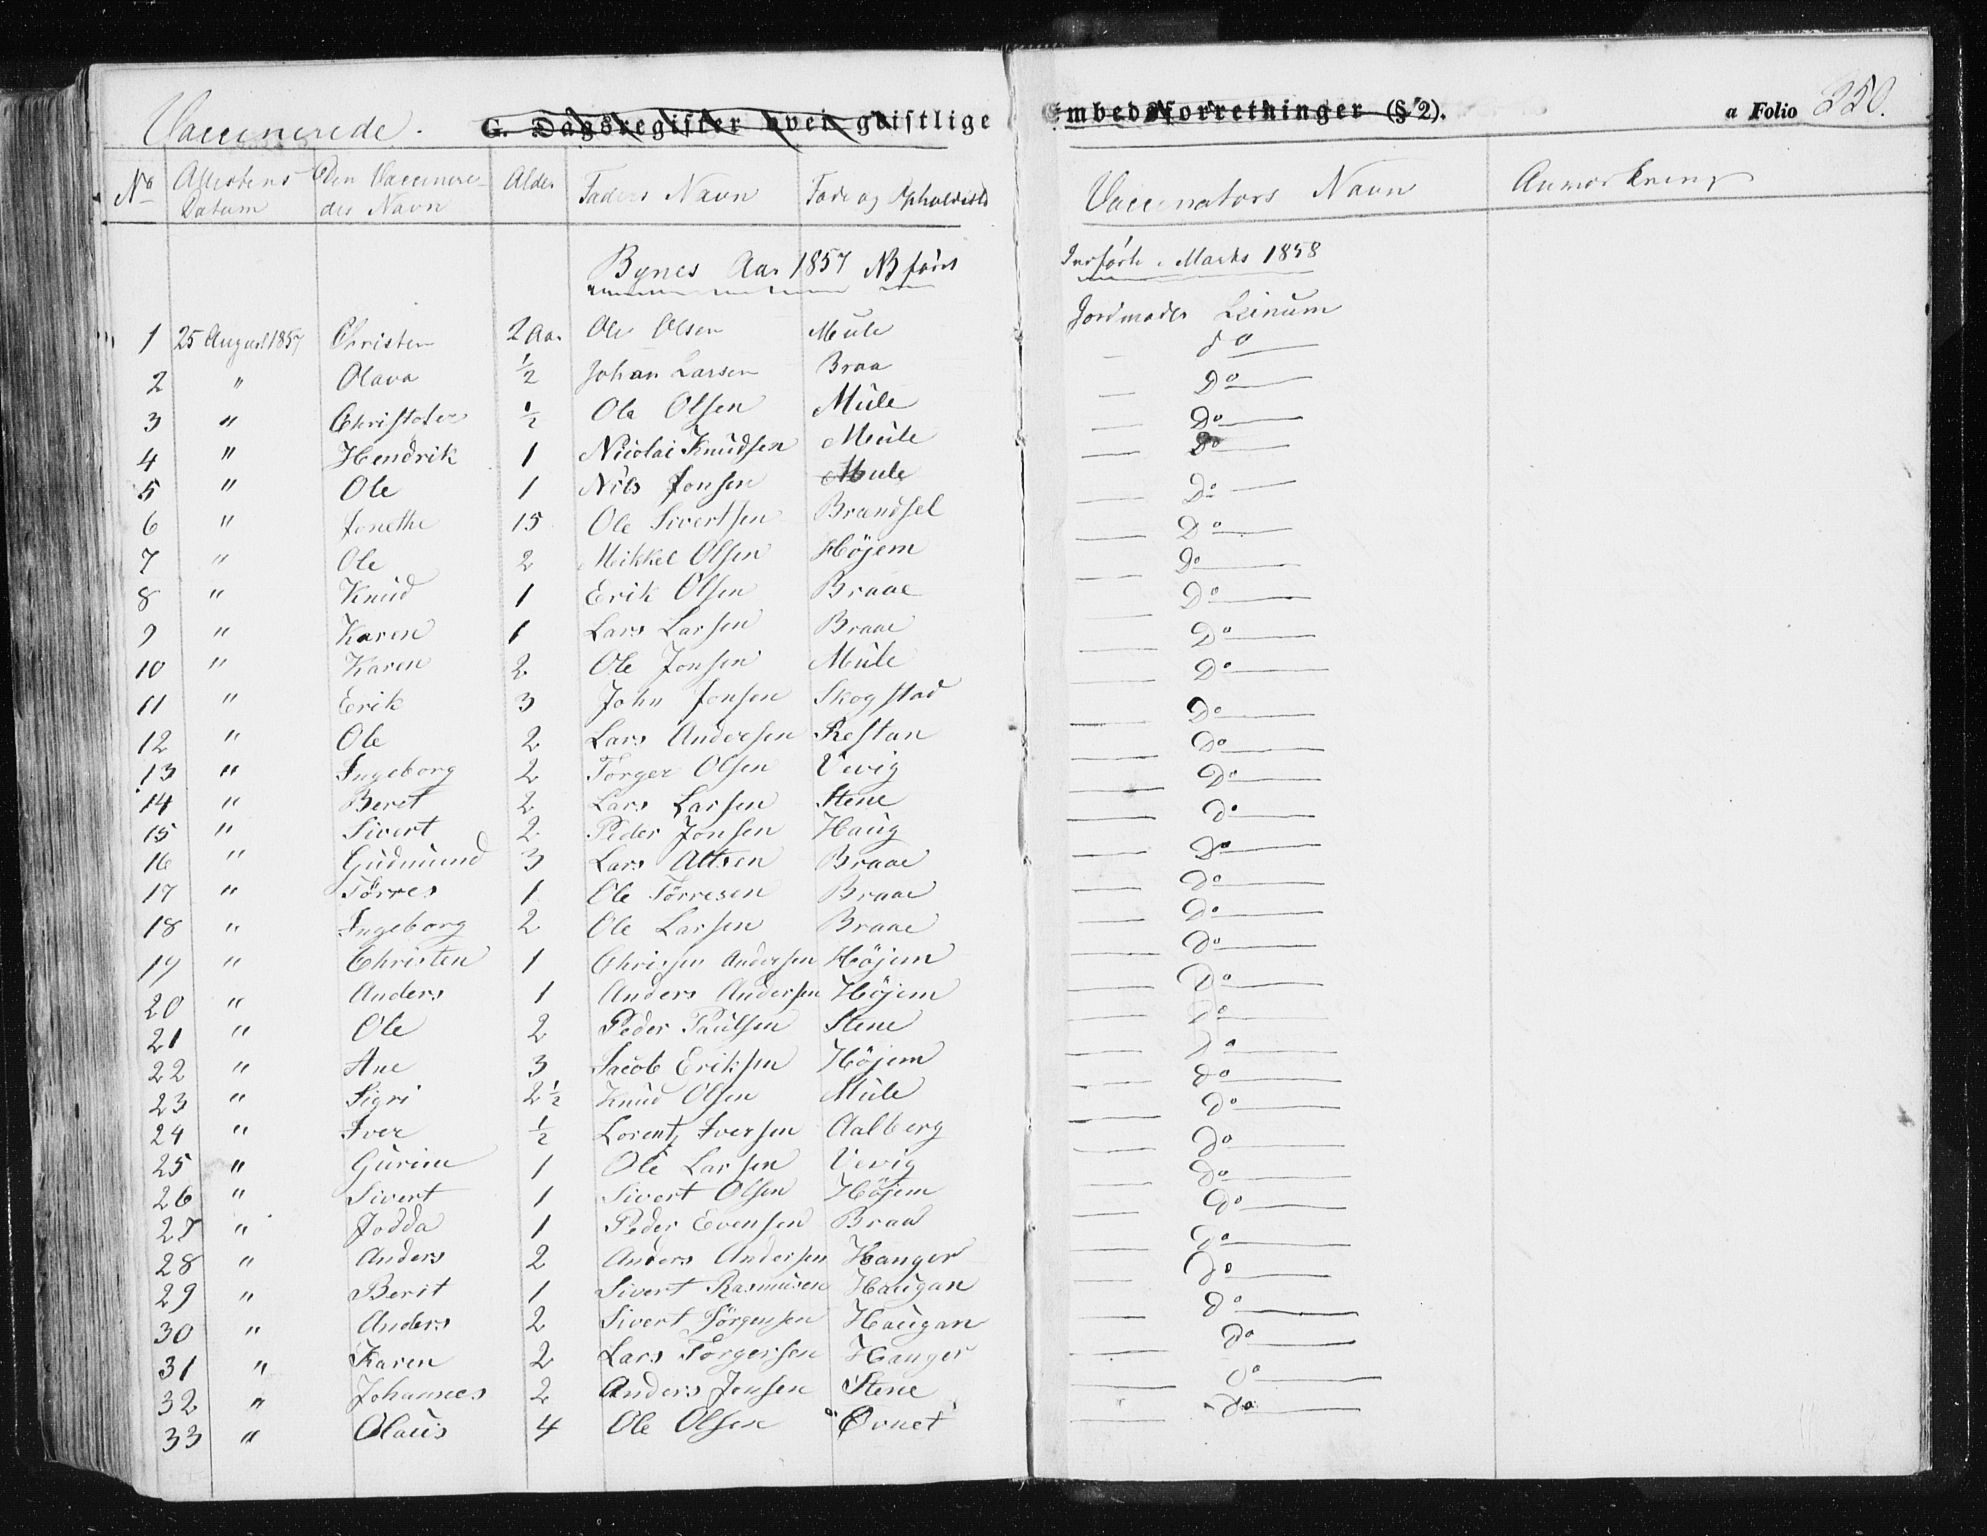 Vaccinerede. G. Dagsregister over geistlige Embedsforretninger (§ 2). a Folio 350.
No Attestens Datum Den Vaccineredes Navn Alder Faders Navn Føde og Opholdssted Vaccinators Navn Anmærkning
Bynes Aar 1857 NB først Indført i Marts 1858
1 25 August 1857 Christen 2 Aar Ole Olsen Mule Jordmoder Leinum
2 " Olava ½ Johan Larsen Braa — do —
3 " Christofer ½ Ole Olsen Mule — Do —
4 " Hendrik 1 Nicolai Knudsen Mule — Do —
5 " Ole 1 Nils Jonsen Mule — Do —
6 " Jonethe 15 Ole Sivertsen Brandsel — Do —
7 " Ole 2 Mikkel Olsen Höjem — Do —
8 " Knud 1 Erik Olsen Braae — Do —
9 " Karen 1 Lars Larsen Braae — Do —
10 " Karen 2 Ole Jonsen Mule — Do —
11 " Erik 3 John Jonsen Skogstad — Do —
12 " Ole 2 Lars Andersen Restan — Do —
13 " Ingeborg 2 Torger Olsen Vevig — Do —
14 " Beret 2 Lars Larsen Stene — Do —
15 " Sivert 2 Peder Jonsen Haug — Do —
16 " Gudmund 3 Lars Altsen Braae — Do —
17 " Törres 1 Ole Törresen Braae — Do —
18 " Ingeborg 2 Ole Larsen Braae — Do —
19 " Christen 1 Andersen Höjem — Do —
20 " Anders 1 Anders Andersen Höjem — Do —
21 " Ole 2 Peder Paulsen Stene — Do —
22 " Ane 3 Jacob Eriksen Höjem — Do —
23 " Sigri 2½ Knud Olsen Mule — Do —
24 " Iver ½ Lorentz Iversen Aalberg — Do —
25 " Gurine 1 Ole Larsen Vevig — Do —
26 " Sivert 1 Sivert Olsen Höjem — Do —
27 " Jodda 1 Peder Evensen Braa — Do —
28 " Anders 2 Anders Andersen Hanger — Do —
29 " Berit 1 Sivert Rasmusen Haugan — Do —
30 " Anders 2 Sivert Jörgensen Haugan — Do —
31 " Karen 2 Lars Torgersen Hanger — Do —
32 " Johannes 2 Anders Jensen Stene — Do —
33 " Olaus 4 Ole Olsen Övnet — Do —